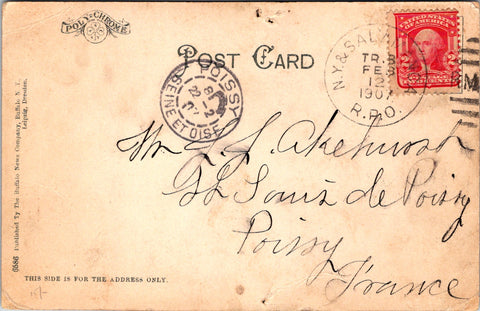 POLY-CHROME
POST CARD
N.Y. & SALAMANCA
TR.3
FEB
12
1907
R.P.O.
UNITED STATES
OF AMERICA
2 2
M
POISSY
SEINE ET OISE
L. L. Akehurst
St Louis de Poissy
Poissy
France
6586 Published by The Buffalo News Company, Buffalo N.Y.
Leipzig, Dresden.
THIS SIDE IS FOR THE ADDRESS ONLY.